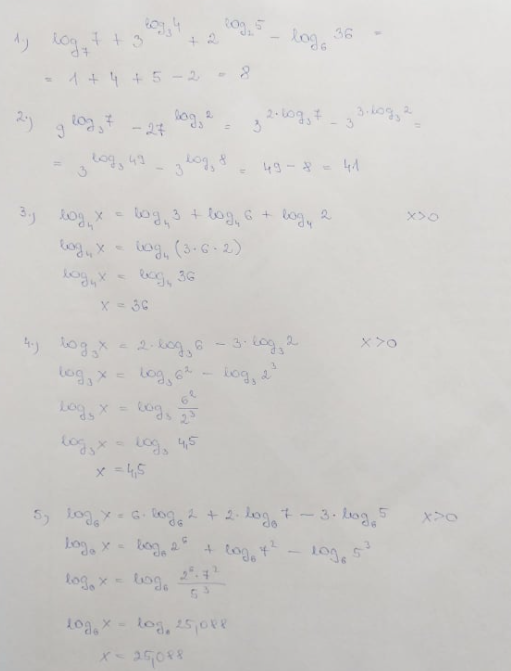 1.) log₇ 7 + 3^(log₃ 4) + 2^(log₂ 5) - log₆ 36 =
= 1 + 4 + 5 - 2 = 8
2.) 9^(log₃ 7) - 27^(log₃ 2) = 3^(2·log₃ 7) - 3^(3·log₃ 2) =
= 3^(log₃ 49) - 3^(log₃ 8) = 49 - 8 = 41
3.) log₄ x = log₄ 3 + log₄ 6 + log₄ 2 x>0
log₄ x = log₄ (3·6·2)
log₄ x = log₄ 36
x = 36
4.) log₃ x = 2·log₃ 6 - 3·log₃ 2 x>0
log₃ x = log₃ 6² - log₃ 2³
log₃ x = log₃ 6²/2³
log₃ x = log₃ 4,5
x = 4,5
5.) log₆ x = 6·log₆ 2 + 2·log₆ 7 - 3·log₆ 5 x>0
log₆ x = log₆ 2⁶ + log₆ 7² - log₆ 5³
log₆ x = log₆ (2⁶·7²)/5³
log₆ x = log₆ 25,088
x = 25,088